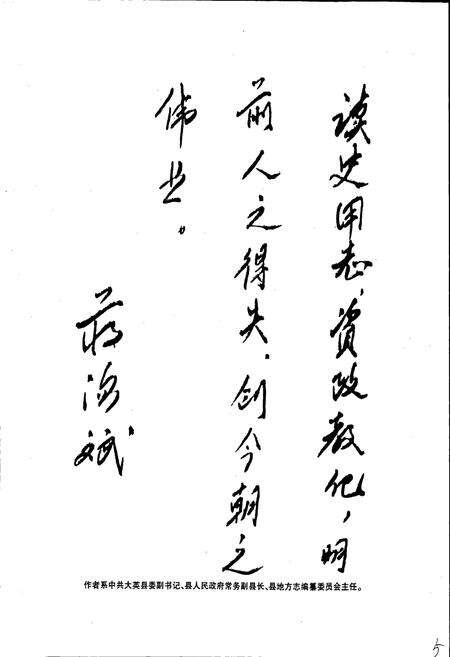 读史用志，资政教化，明
前人之得失，创今朝之
伟业。
蒋海斌
作者系中共大英县委副书记、县人民政府常务副县长、县地方志编纂委员会主任。
5